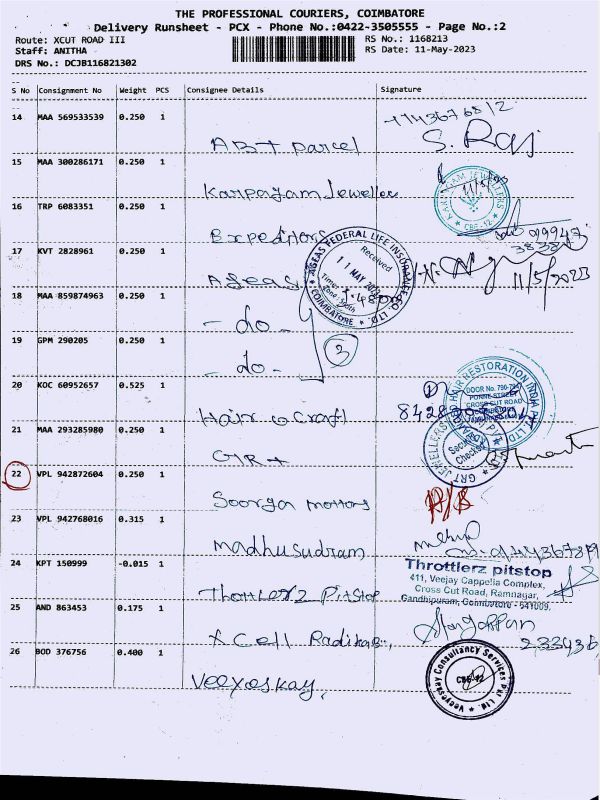 THE PROFESSIONAL COURIERS, COIMBATORE
Delivery Runsheet - PCX - Phone No.:0422-3505555 - Page No.:2
Route: XCUT ROAD III
RS No.: 1168213
Staff: ANITHA
RS Date: 11-May-2023
DRS No.: DCJB116821302
S No Consignment No Weight PCS Consignee Details Signature
14 MAA 569533539 0.250 1
ABT parcel S. Raj
15 MAA 300286171 0.250 1
Karpagam Jewellee
16 TRP 6083351 0.250 1
KARPAGAM JEWELLERS
CBE-12
Expeditors
17 KVT 2828961 0.250 1
Ageas 11/5/2023
AGEAS FEDERAL LIFE INSURANCE CO. LTD.
Received
11 MAY 2023
Time:
COIMBATORE
18 MAA 859874963 0.250 1
- do -
19 GPM 290205 0.250 1
- do - 3
20 KOC 60952657 0.525 1
HAIR RESTORATION INDIA PVT. LTD
DOOR No.
CROSS CUT ROAD
Hair o Craft
21 MAA 293285980 0.250 1
GRT JEWELLERS
Checked
GIRt
22 VPL 942872604 0.250 1
Soorya motors
23 VPL 942768016 0.315 1
Madhusudram
24 KPT 150999 -0.015 1
Throttlerz pitstop
411, Veejay Cappella Complex,
Cross Cut Road, Ramnagar,
Gandhipuram, Coimbatore - 641009.
Thottlerz Pitstop
25 AND 863453 0.175 1
X Cell 233436
26 BOD 376756 0.400 1
Veeyeskay Consultancy Services Pvt Ltd
CBE-12
Veeyeskay,